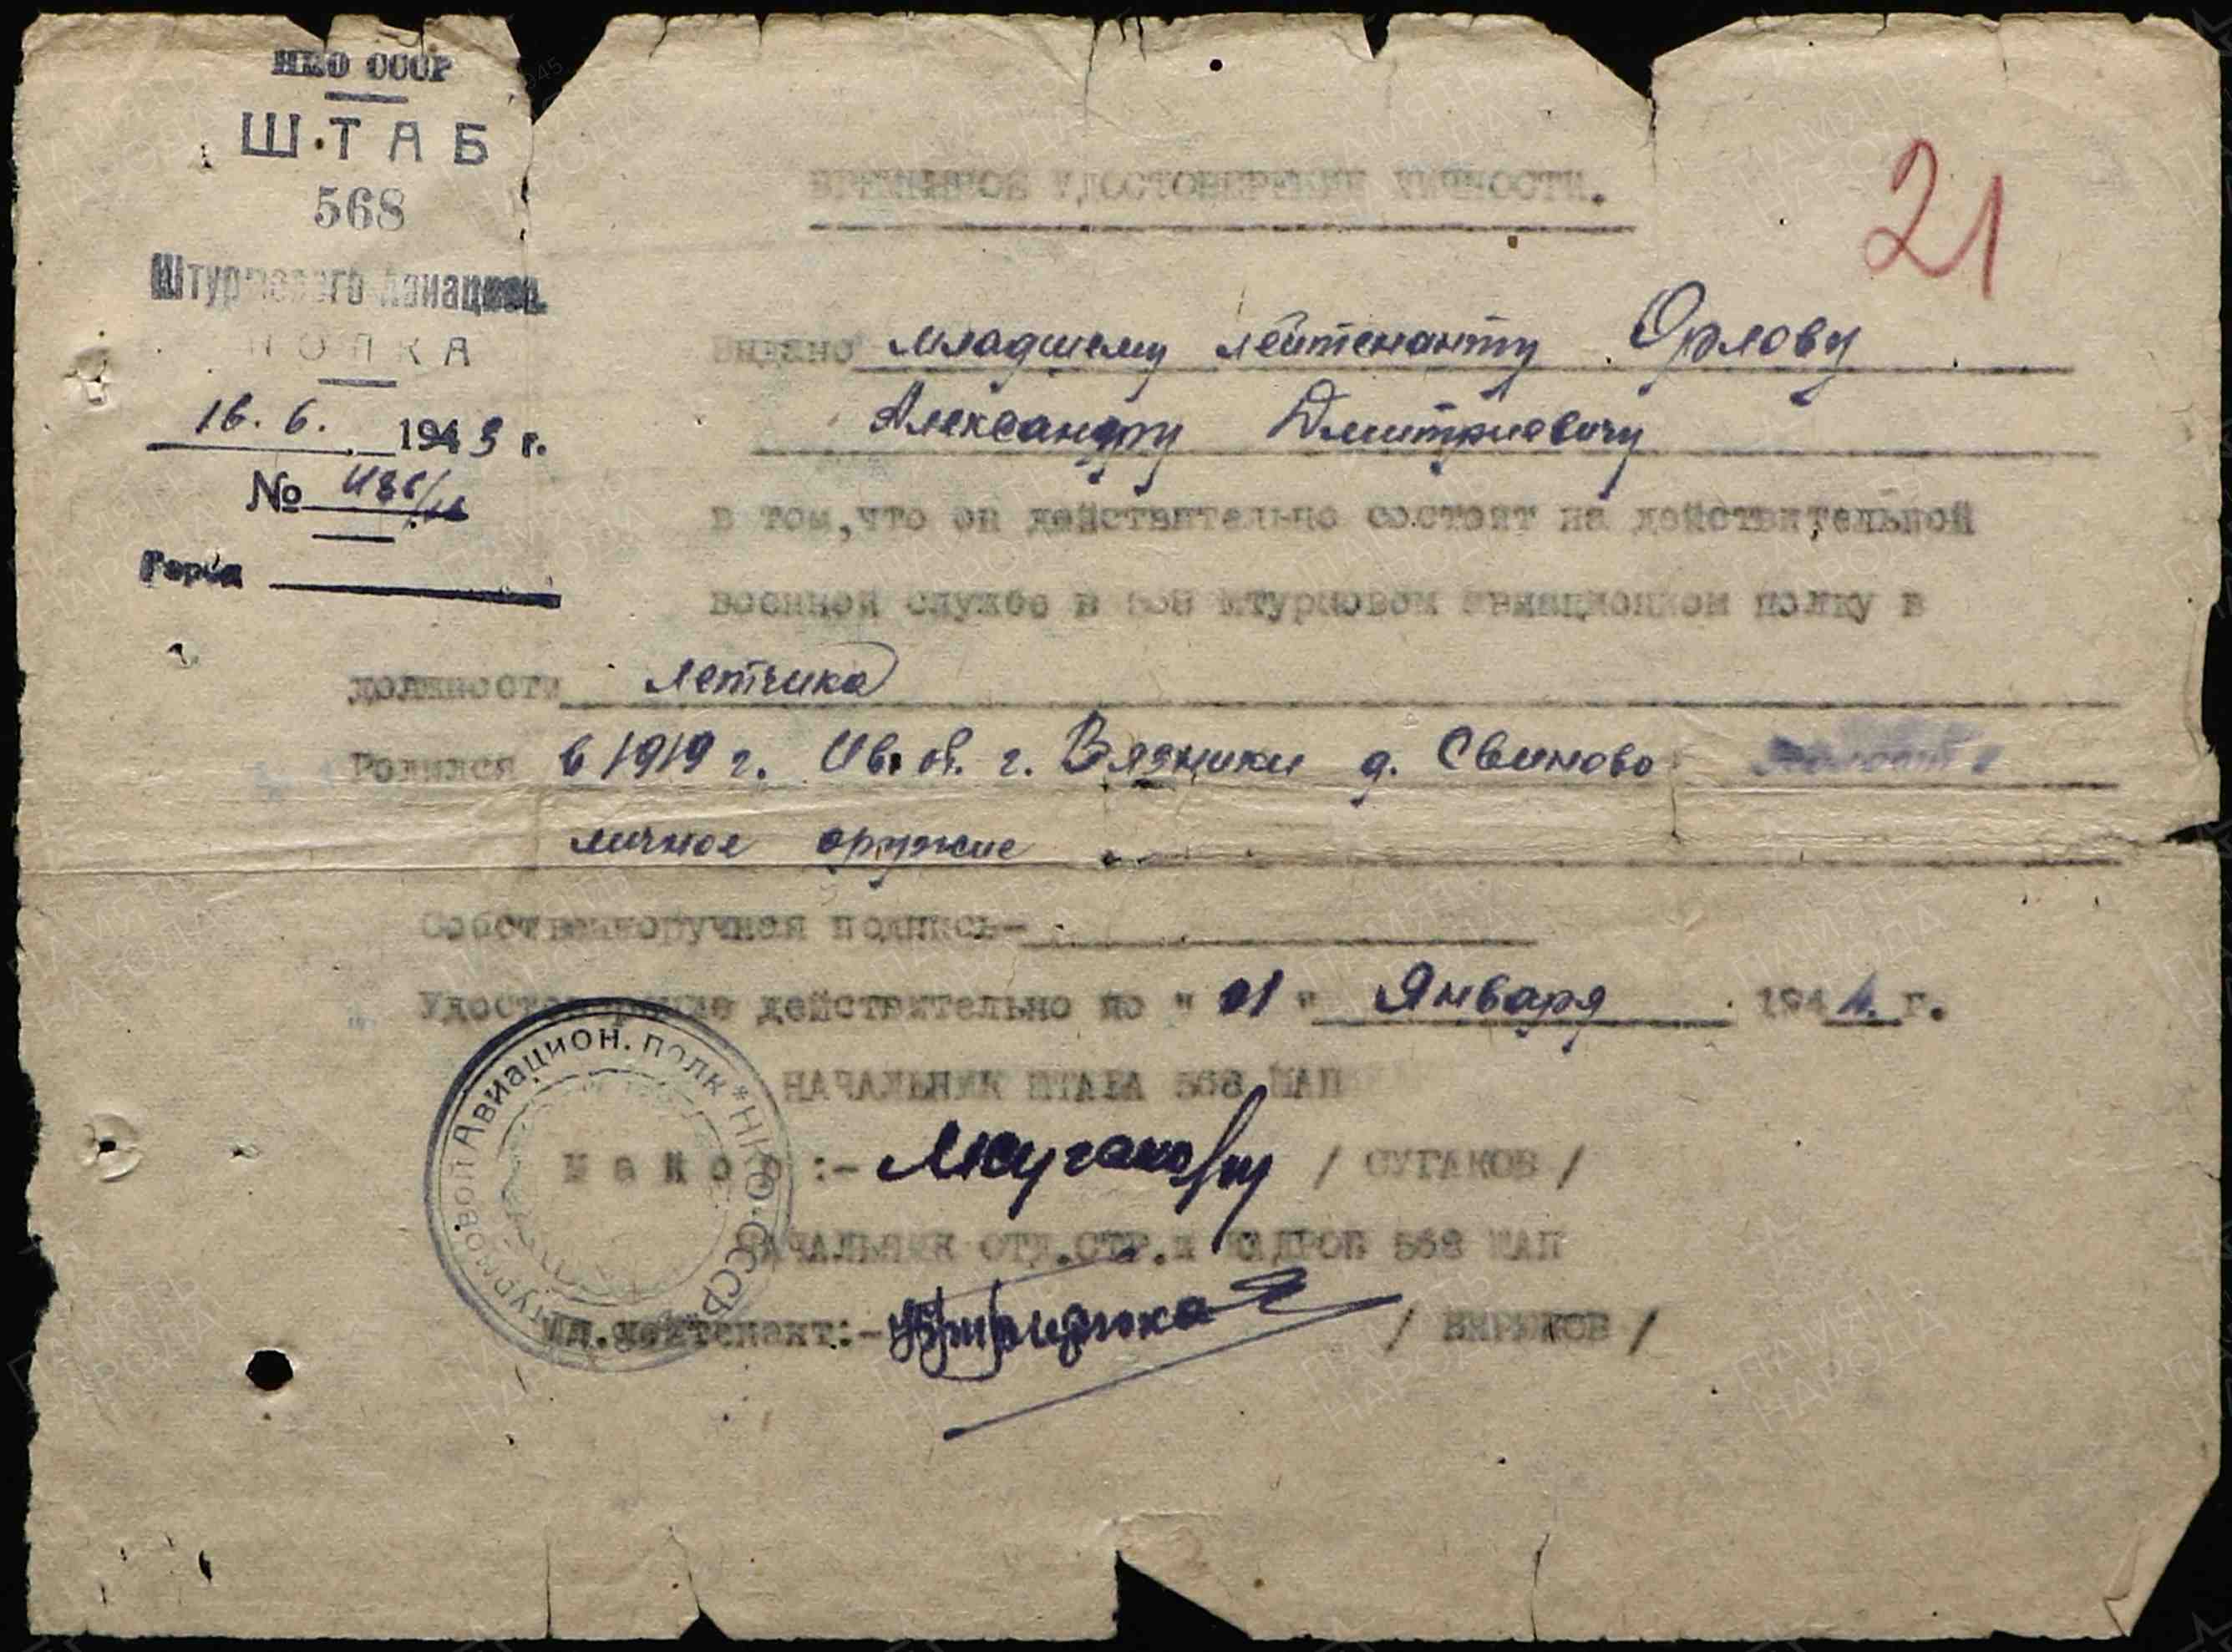 НКО СССР
ШТАБ
568
Штурмового Авиацион.
ПОЛКА
16. 6. 1943 г.
№
Город
21
ВРЕМЕННОЕ УДОСТОВЕРЕНИЕ ЛИЧНОСТИ.
Выдано младшему лейтенанту Орлову
Александру Дмитриевичу
в том, что он действительно состоит на действительной
военной службе в 568 штурмовом авиационном полку в
должности летчика
Родился в 1919 г. Ив. об. г. Вязники д. Свиново
личное оружие
Собственноручная подпись-
Удостоверение действительно по "01" Января 1944. г.
НАЧАЛЬНИК ШТАБА 568 ШАП
Майор :- / СУГАКОВ /
НАЧАЛЬНИК ОТД.СТР.И КАДРОВ 568 ШАП
Мл.лейтенант:- / БИРЮКОВ /
Штурмовой Авиацион. полк * НКО-СССР
ПАМЯТЬ НАРОДА